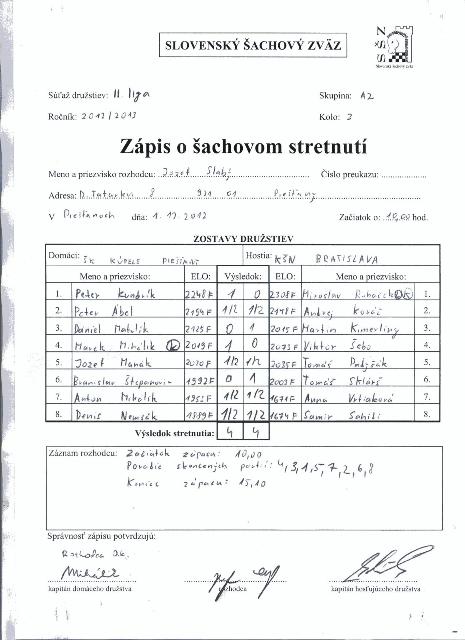 SLOVENSKÝ ŠACHOVÝ ZVÄZ
Slovenský šachový zväz
Súťaž družstiev: II. liga
Skupina: A2
Ročník: 2012/2013
Kolo: 3
Zápis o šachovom stretnutí
Meno a priezvisko rozhodcu: Jozef Slabý
Číslo preukazu:
Adresa: D. Tatarku 8 921 01 Piešťany
V Piešťanoch dňa: 1.12.2012 Začiatok o: 10,00 hod.
ZOSTAVY DRUŽSTIEV
Domáci: ŠK KÚPELE PIEŠŤANY Hostia: KŠN BRATISLAVA
Meno a priezvisko: ELO: Výsledok: ELO: Meno a priezvisko:
1. Peter Kundrík 2248F 1 0 2308F Miroslav 1.
2. Peter Ábel 2154F 1/2 1/2 2148F Andrej Kováč 2.
3. Daniel Matulík 2125F 0 1 2015F Martin Kimerling 3.
4. Marek Mihálik K 2019F 1 0 2073F Viktor Šebo 4.
5. Jozef Maňák 2070F 1/2 1/2 2035F Tomáš 5.
6. Branislav Štepanovič 1992F 0 1 2003F Tomáš Sklárš 6.
7. Anton Mihálik 1952F 1/2 1/2 1671F Anna Vrtiaková 7.
8. Denis Nemsák 1889F 1/2 1/2 1674F Samir Sahidi 8.
Výsledok stretnutia: 4 4
Záznam rozhodcu: Začiatok zápasu: 10,00
Poradie skončených partií: 4,3,1,5,7,2,6,8
Koniec zápasu: 15,10
Správnosť zápisu potvrdzujú:
Rozhodca
Mihálik
kapitán domáceho družstva
rozhodca
kapitán hosťujúceho družstva